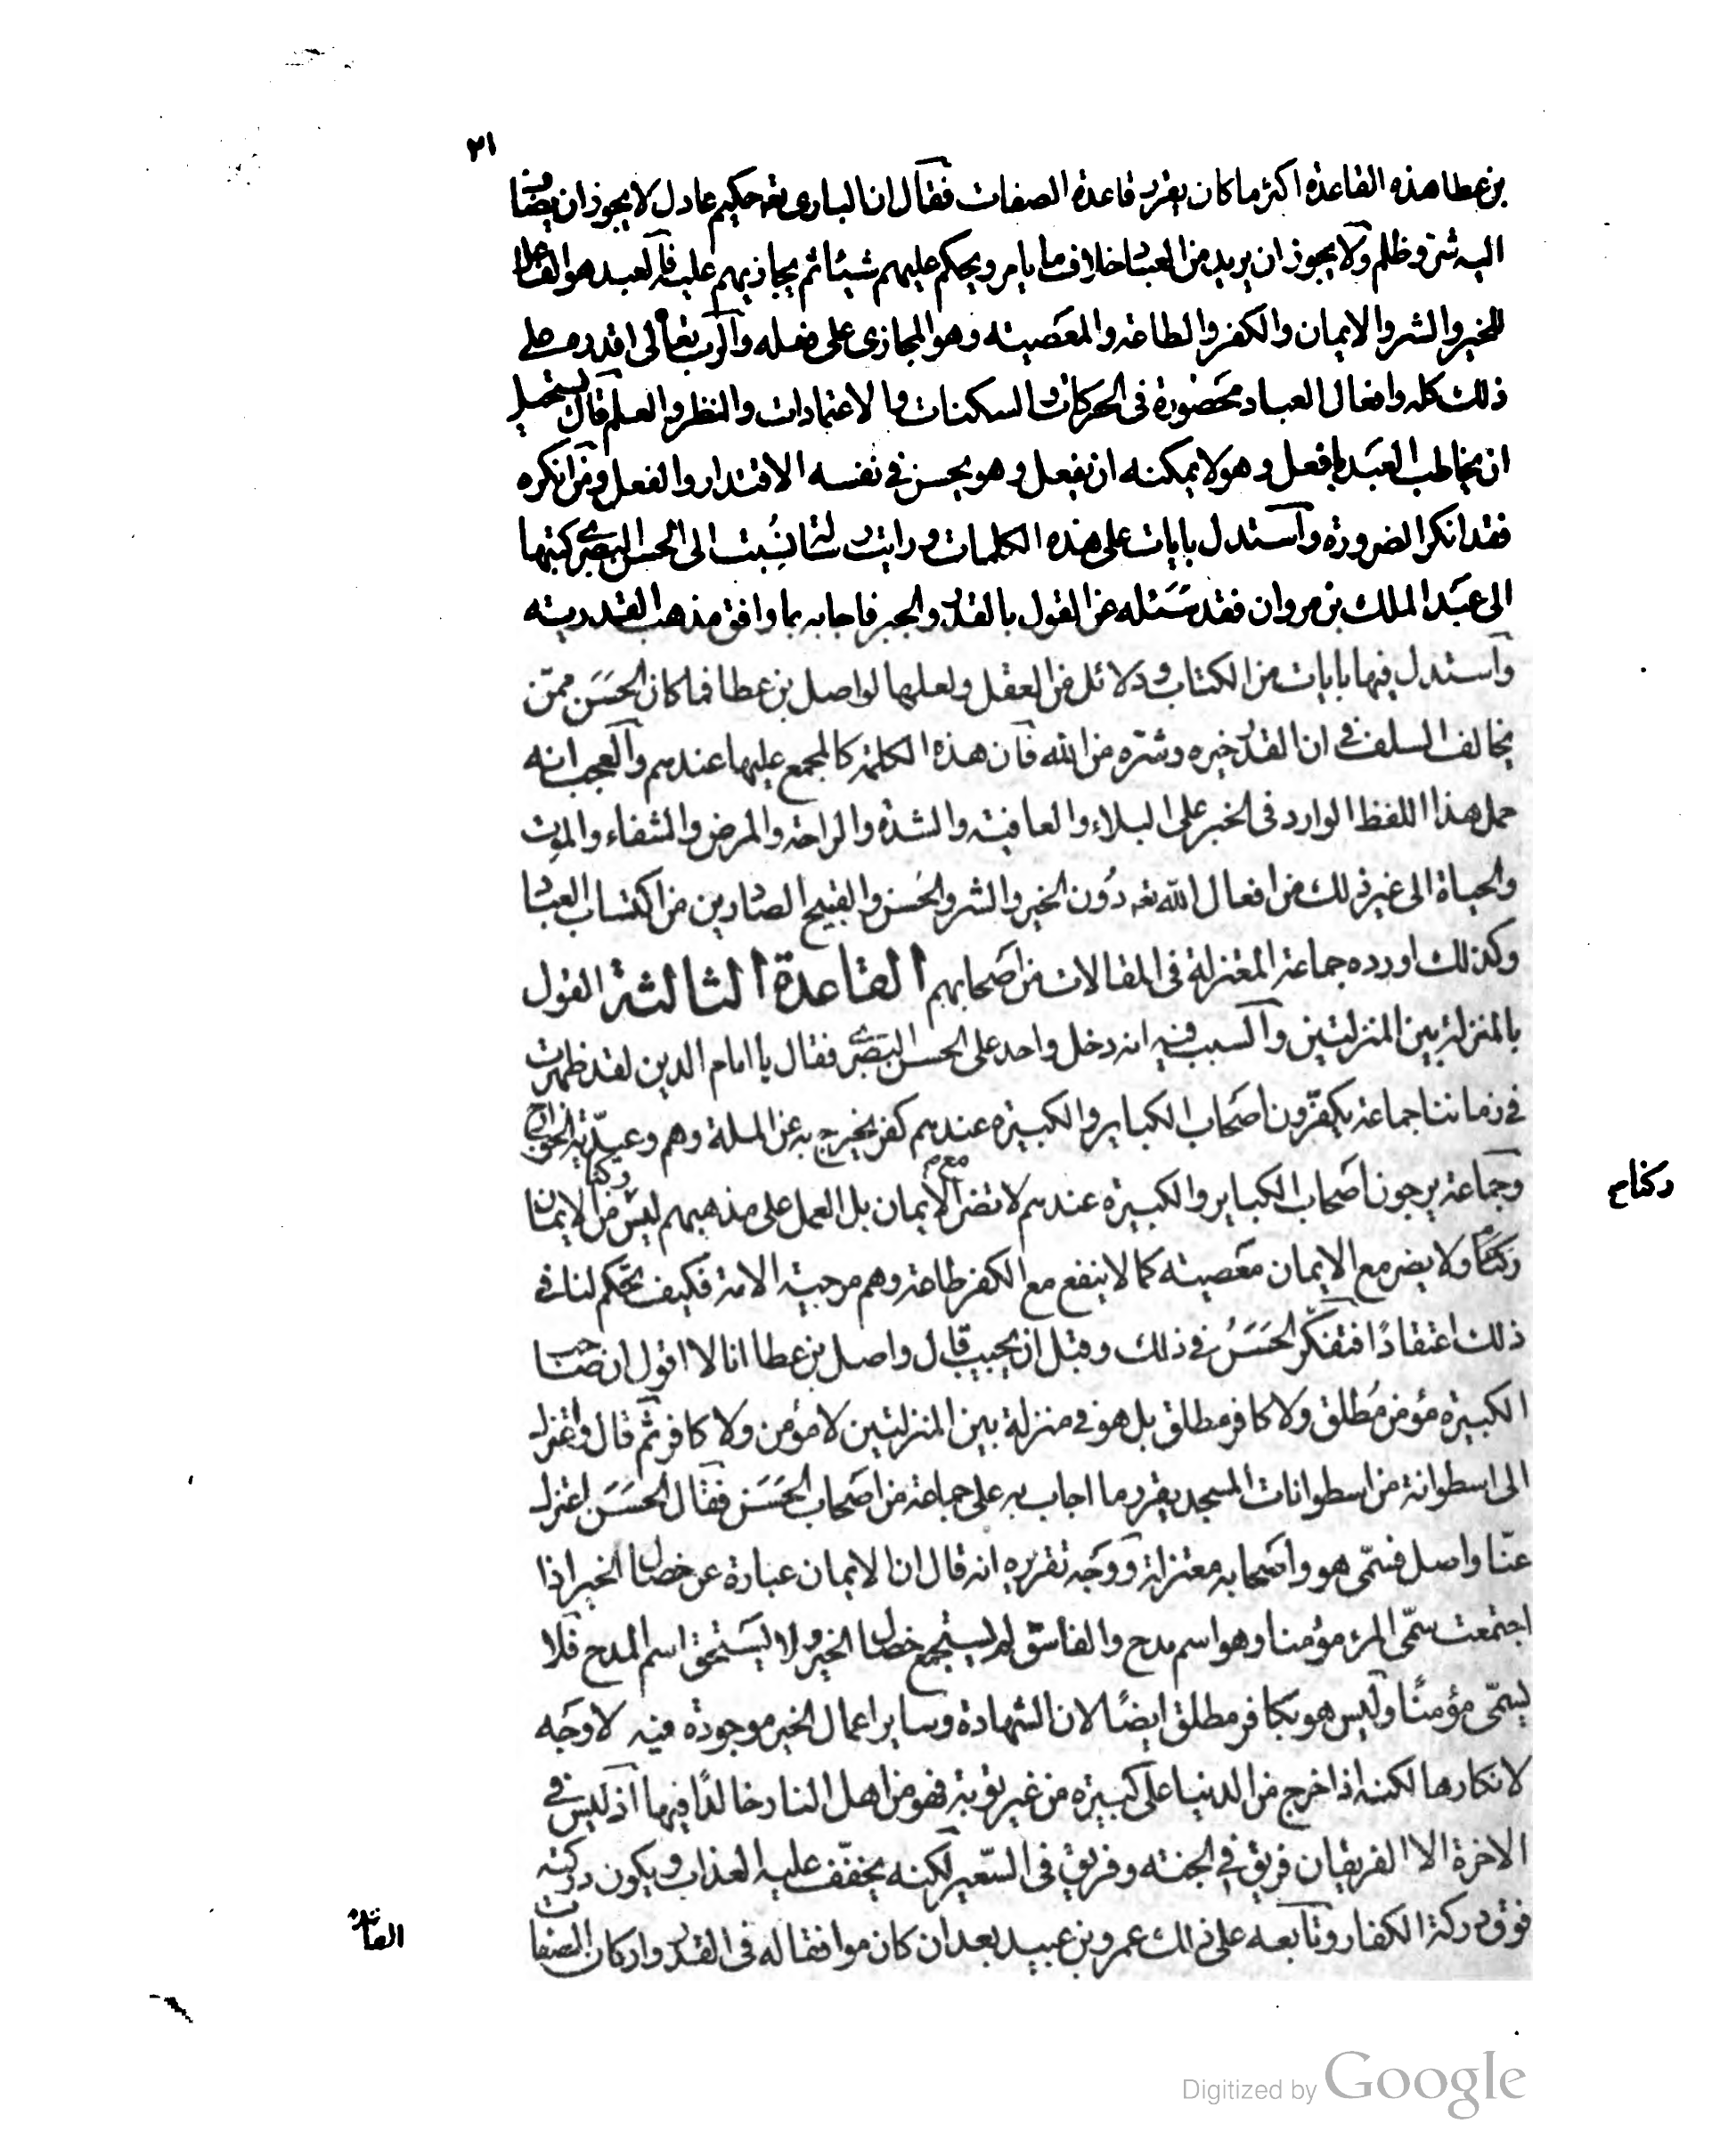 ٢١
بن عطا هذه القاعدة اكثر ما كان يقرر قاعدة الصفات فقال ان البارى تعه حكيم عادل لا يجوز ان يضاف
اليه شر وظلم ولا يجوز ان يريد من العباد خلاف ما يامر ويحكم عليهم شيئا ثم يجازيهم عليه فالعبد هو الفاعل
للخير والشر والايمان والكفر والطاعة والمعصيته وهو المجازى على فعله والرب تعالى اقدره على
ذلك كله وافعال العباد محصورة فى الحركات والسكنات والاعتمادات والنظر والعلم قال يستحيل
ان يخاطب العبد بافعل وهو لا يمكنه ان يفعل وهو يحسن فى نفسه الاقتدار والفعل ومن انكره
فقد انكر الضرورة واستدل بايات على هذه الكلمات ورايت رسالتا نسبت الى الحسن البصرى كتبها
الى عبد الملك بن مروان فقد سئله عن القول بالقدر والجبر فاجابه بما وافق مذهب القدريته
واستدل فيها بايات من الكتاب ودلائل من العقل ولعلها لواصل بن عطا فما كان الحسن ممن
يخالف السلف فى ان القدر خيره وشره من الله فان هذه الكلمة كالمجمع عليها عندهم والعجب انه
حمل هذا اللفظ الوارد فى الخبر على البلاء والعافيته والشدة والراحة والمرض والشفاء والموت
والحياة الى غير ذلك من افعال الله تعه دون الخير والشر والحسن والقبيح الصادرين من اكتساب العباد
وكذلك اورده جماعة المعتزلة فى المقالات من اصحابهم القاعدة الثالثة القول
بالمنزلة بين المنزلتين والسبب فيه انه دخل واحد على الحسن البصرى فقال يا امام الدين لقد ظهرت
فى زماننا جماعة يكفرون اصحاب الكباير والكبيرة عندهم كفر يخرج به عن الملة وهم وعيدية الخوارج
وجماعة يرجون اصحاب الكباير والكبيرة عندهم لا تضر مع الايمان بل العمل على مذهبهم ليس من الايمان
ركنا ولا يضر مع الايمان معصيته كما لا ينفع مع الكفر طاعة وهم مرجية الامة فكيف تحكم لنا فى
ركنا م
ذلك اعتقادا فتفكر الحسن فى ذلك وقبل ان يجيب قال واصل بن عطا انا لا اقول ان صاحب
الكبيرة مؤمن مطلق ولا كافر مطلق بل هو فى منزلة بين المنزلتين لا مؤمن ولا كافر ثم قال واعتزل
الى اسطوانة من اسطوانات المسجد يقرر ما اجاب به على جماعة من اصحاب الحسن فقال الحسن اعتزل
عنا واصل فسمى هو واصحابه معتزلة ووجه تقريره انه قال ان الايمان عبارة عن خصال الخير اذا
اجتمعت سمى المرء مؤمنا وهو اسم مدح والفاسق لم يستجمع خصال الخير ولا يستحق اسم المدح فلا
يسمى مؤمنا وليس هو بكافر مطلق ايضا لان الشهادة وساير اعمال الخير موجودة فيه لا وجه
لانكارها لكنه اذا خرج من الدنيا على كبيرة من غير توبة فهو من اهل النار خالدا فيها اذ ليس فى
الاخرة الا الفريقان فريق فى الجنته وفريق فى السعير لكنه يخفف عليه العذاب ويكون دركته
فوق دركة الكفار وتابعه على ذلك عمرو بن عبيد بعد ان كان موافقا له فى القدر واركان الصفات
Digitized by Google